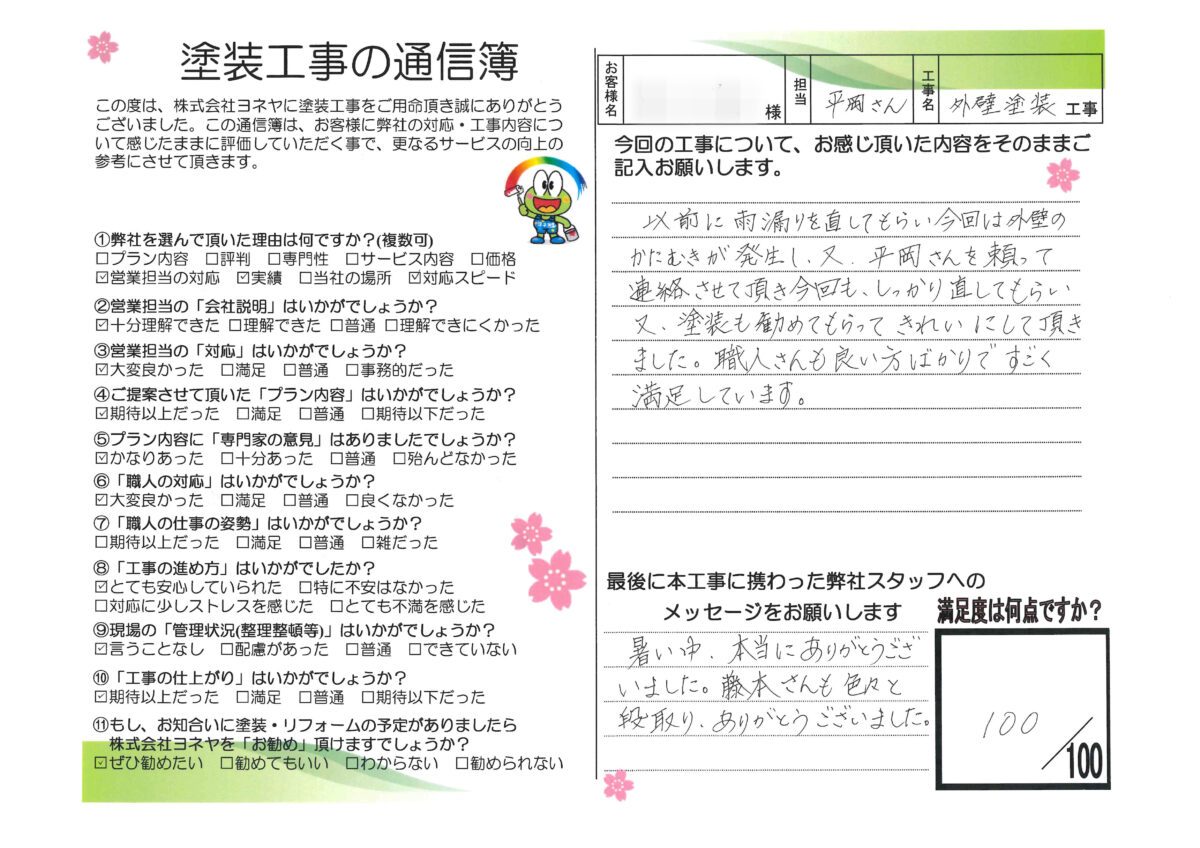 塗装工事の通信簿
この度は、株式会社ヨネヤに塗装工事をご用命頂き誠にありがとう
ございました。この通信簿は、お客様に弊社の対応・工事内容につ
いて感じたままに評価していただく事で、更なるサービスの向上の
参考にさせて頂きます。
①弊社を選んで頂いた理由は何ですか?(複数可)
□プラン内容 □評判 □専門性 □サービス内容 □価格
☑営業担当の対応 ☑実績 □当社の場所 ☑対応スピード
②営業担当の「会社説明」はいかがでしょうか?
☑十分理解できた □理解できた □普通 □理解できにくかった
③営業担当の「対応」はいかがでしょうか?
☑大変良かった □満足 □普通 □事務的だった
④ご提案させて頂いた「プラン内容」はいかがでしょうか?
☑期待以上だった □満足 □普通 □期待以下だった
⑤プラン内容に「専門家の意見」はありましたでしょうか?
☑かなりあった □十分あった □普通 □殆んどなかった
⑥「職人の対応」はいかがでしょうか?
☑大変良かった □満足 □普通 □良くなかった
⑦「職人の仕事の姿勢」はいかがでしょうか?
□期待以上だった □満足 □普通 □雑だった
⑧「工事の進め方」はいかがでしたか?
☑とても安心していられた □特に不安はなかった
□対応に少しストレスを感じた □とても不満を感じた
⑨現場の「管理状況(整理整頓等)」はいかがでしょうか?
☑言うことなし □配慮があった □普通 □できていない
⑩「工事の仕上がり」はいかがでしょうか?
☑期待以上だった □満足 □普通 □期待以下だった
⑪もし、お知合いに塗装・リフォームの予定がありましたら
株式会社ヨネヤを「お勧め」頂けますでしょうか?
☑ぜひ勧めたい □勧めてもいい □わからない □勧められない
お客様名 様 担当 平岡さん 工事名 外壁塗装 工事
今回の工事について、お感じ頂いた内容をそのままご
記入お願いします。
以前に雨漏りを直してもらい今回は外壁の
かにむきが発生し、又、平岡さんを頼って
連絡させて頂き今回も、しっかり直してもらい
又、塗装も勧めてもらってきれいにして頂き
ました。職人さんも良い方ばかりですごく
満足しています。
最後に本工事に携わった弊社スタッフへの
メッセージをお願いします
暑い中、本当にありがとうござ
いました。藤本さんも色々と
段取り、ありがとうございました。
満足度は何点ですか?
100/100